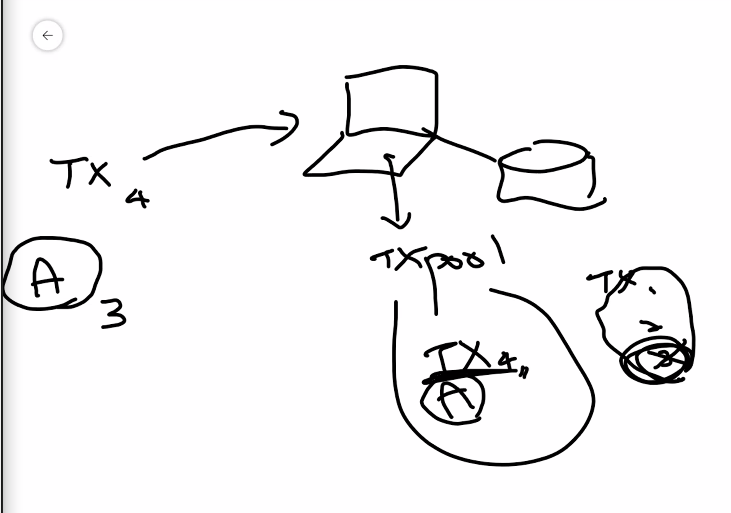 TX 4
A 3
TXpool
TX 4
A
TX
2